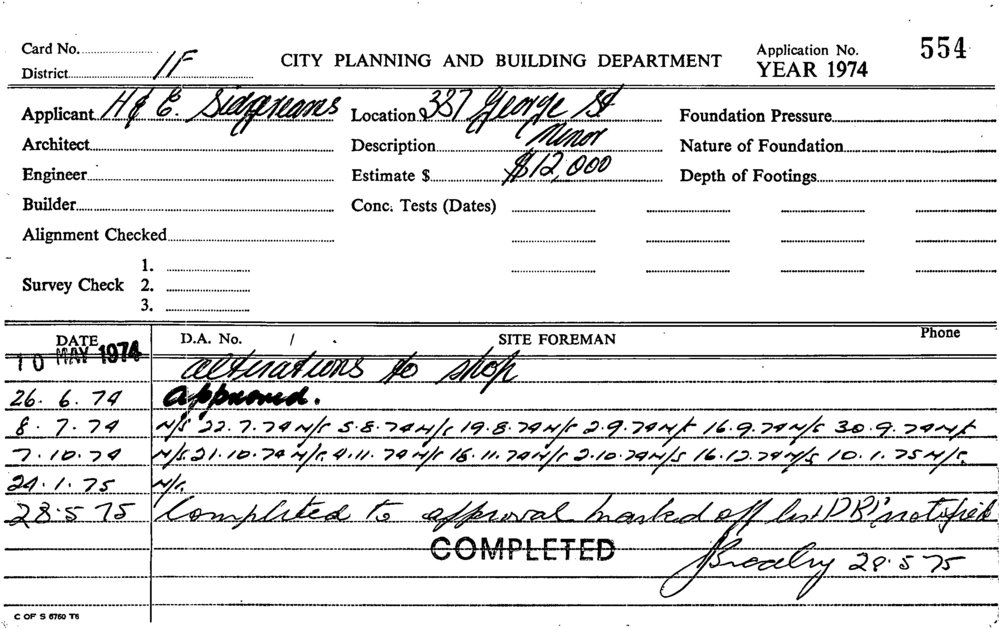 Card No.
District 1F
CITY PLANNING AND BUILDING DEPARTMENT
Application No. 554
YEAR 1974
Applicant H & E. Sidgreaves Location 387 George St Foundation Pressure
Architect Description Minor Nature of Foundation
Engineer Estimate $ $12,000 Depth of Footings
Builder Conc. Tests (Dates)
Alignment Checked
1.
Survey Check 2.
3.
DATE D.A. No. / SITE FOREMAN Phone
10 MAY 1974 alterations to shop
26. 6. 74 Approved.
8. 7. 74 N/S 22.7.74 N/S 5.8.74 N/S 19.8.74 N/S 2.9.74 N/S 16.9.74 N/S 30.9.74 N/S
7. 10. 74 N/S 21.10.74 N/S 4.11.74 N/S 18.11.74 N/S 2.10.74 N/S 16.12.74 N/S 10.1.75 N/S.
24. 1. 75 N/S.
28.5 75 Completed to approval marked off list notified
COMPLETED
28.5.75
C OF S 6760 T6